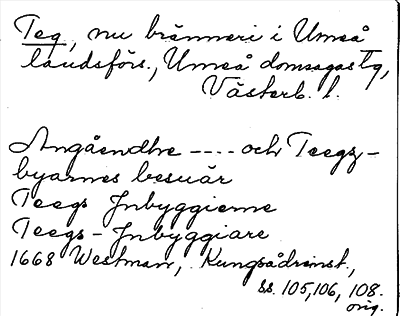 Teg, nu bränneri i Umeå
landsförs., Umeå domsagas tg,
Västerb. l.
Angåendhe ---- och Teegz-
byarnes besuär
Teegs Inbyggierne
Teegs-Inbyggiare
1668 Westman, Kungsådrinst.,
ss. 105, 106, 108.
orig.